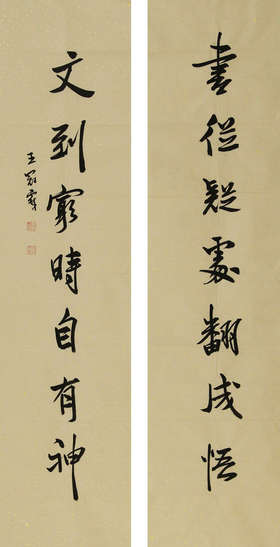 書從疑處翻成悟
文到窮時自有神
王